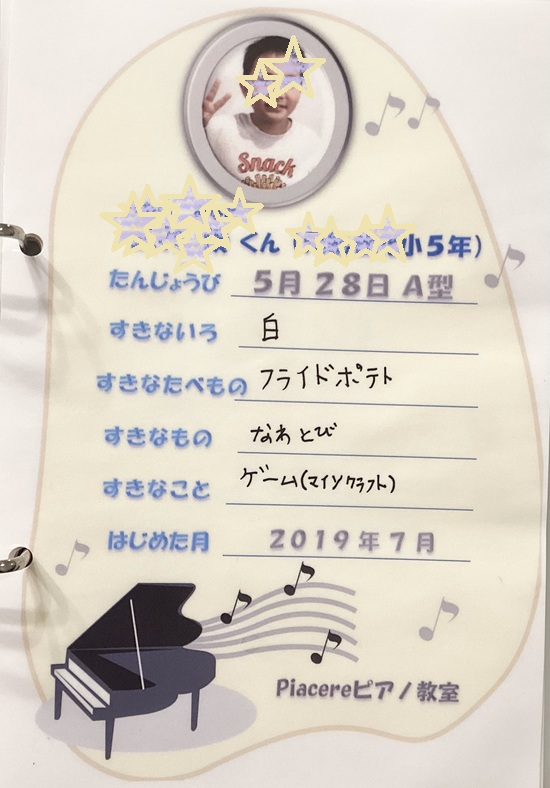 Snack
くん（ 小5年）
たんじょうび 5月28日 A型
すきないろ 白
すきなたべもの フライドポテト
すきなもの なわとび
すきなこと ゲーム(マインクラフト)
はじめた月 2019年7月
Piacereピアノ教室